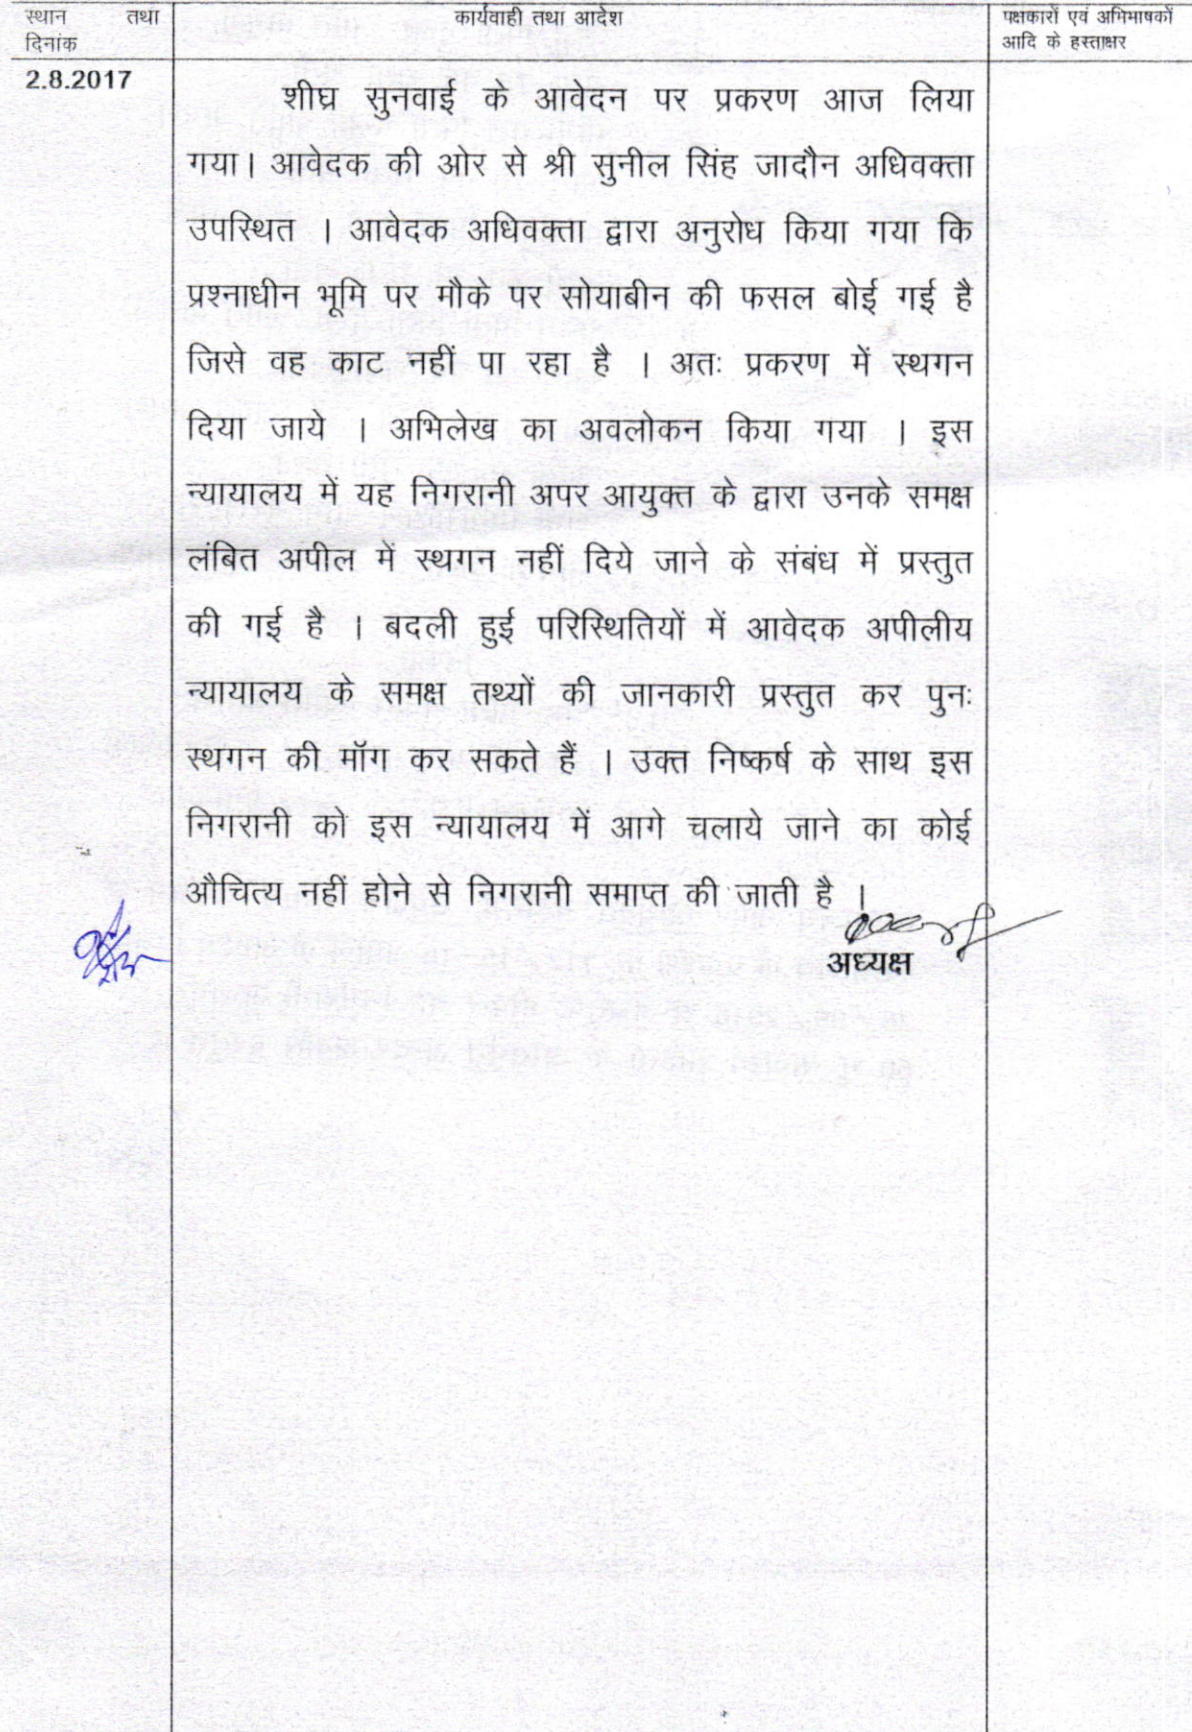 स्थान तथा
दिनांक
कार्यवाही तथा आदेश
पक्षकारों एवं अभिभाषकों
आदि के हस्ताक्षर
2.8.2017
शीघ्र सुनवाई के आवेदन पर प्रकरण आज लिया
गया। आवेदक की ओर से श्री सुनील सिंह जादौन अधिवक्ता
उपस्थित । आवेदक अधिवक्ता द्वारा अनुरोध किया गया कि
प्रश्नाधीन भूमि पर मौके पर सोयाबीन की फसल बोई गई है
जिसे वह काट नहीं पा रहा है । अतः प्रकरण में स्थगन
दिया जाये । अभिलेख का अवलोकन किया गया । इस
न्यायालय में यह निगरानी अपर आयुक्त के द्वारा उनके समक्ष
लंबित अपील में स्थगन नहीं दिये जाने के संबंध में प्रस्तुत
की गई है । बदली हुई परिस्थितियों में आवेदक अपीलीय
न्यायालय के समक्ष तथ्यों की जानकारी प्रस्तुत कर पुनः
स्थगन की मॉग कर सकते हैं । उक्त निष्कर्ष के साथ इस
निगरानी को इस न्यायालय में आगे चलाये जाने का कोई
औचित्य नहीं होने से निगरानी समाप्त की जाती है ।
अध्यक्ष